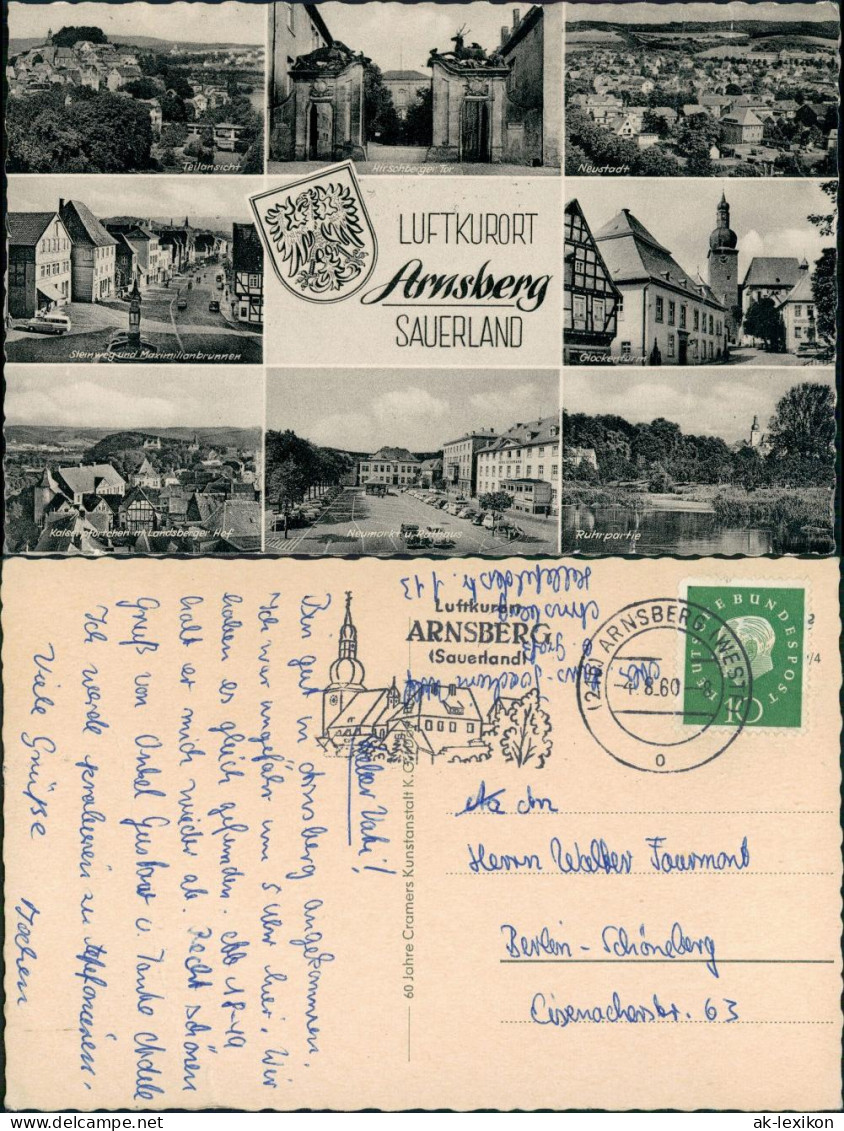 Teilansicht
Hirschberger Tor
Neustadt
LUFTKURORT
Arnsberg
SAUERLAND
Steinweg und Maximilianbrunnen
Glockenturm
Kaiserpförtchen m. Landsberger Hof
Neumarkt u. Rathaus
Ruhrpartie
Luftkurort
ARNSBERG
(Sauerland)
ARNSBERG (WESTF
4.8.60
DEUTSCHE BUNDESPOST
10
60 Jahre Cramers Kunstanstalt K.G.
Lieber Vati!
Bin gut in Arnsberg angekommen.
Ich war ungefähr um 5 Uhr hier. Wir
haben es gleich gefunden.
holt er mich wieder ab. Recht schönen
Gruß von Onkel Gustav u. Tante Adele
Ich werde probieren zu telefonieren.
Viele Grüße
Jochen
An den
Herrn Walter Fourmont
Berlin-Schöneberg
Eisenacherstr. 63
ak-lexikon